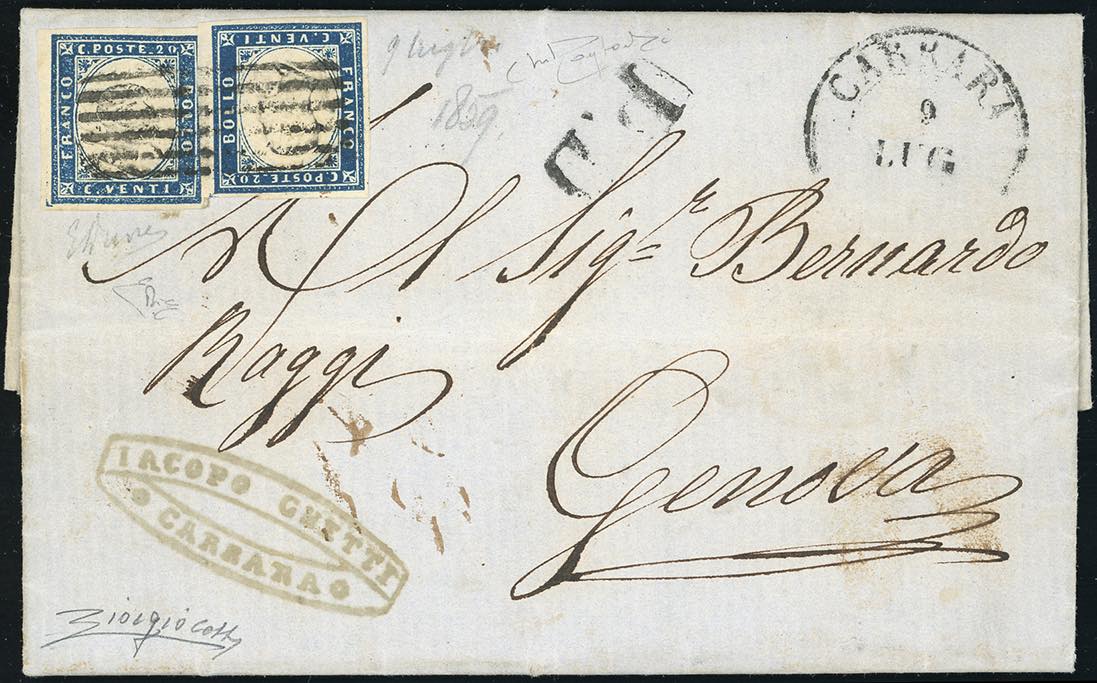 C. POSTE. 20
FRANCO
BOLLO
C. VENTI
C. VENTI
BOLLO
FRANCO
C. POSTE. 20
9 luglio
1859
P.D.
CARRARA
9
LUG
Al Sigr. Bernardo
Raggi
Genova
IACOPO GHETTI
CARRARA